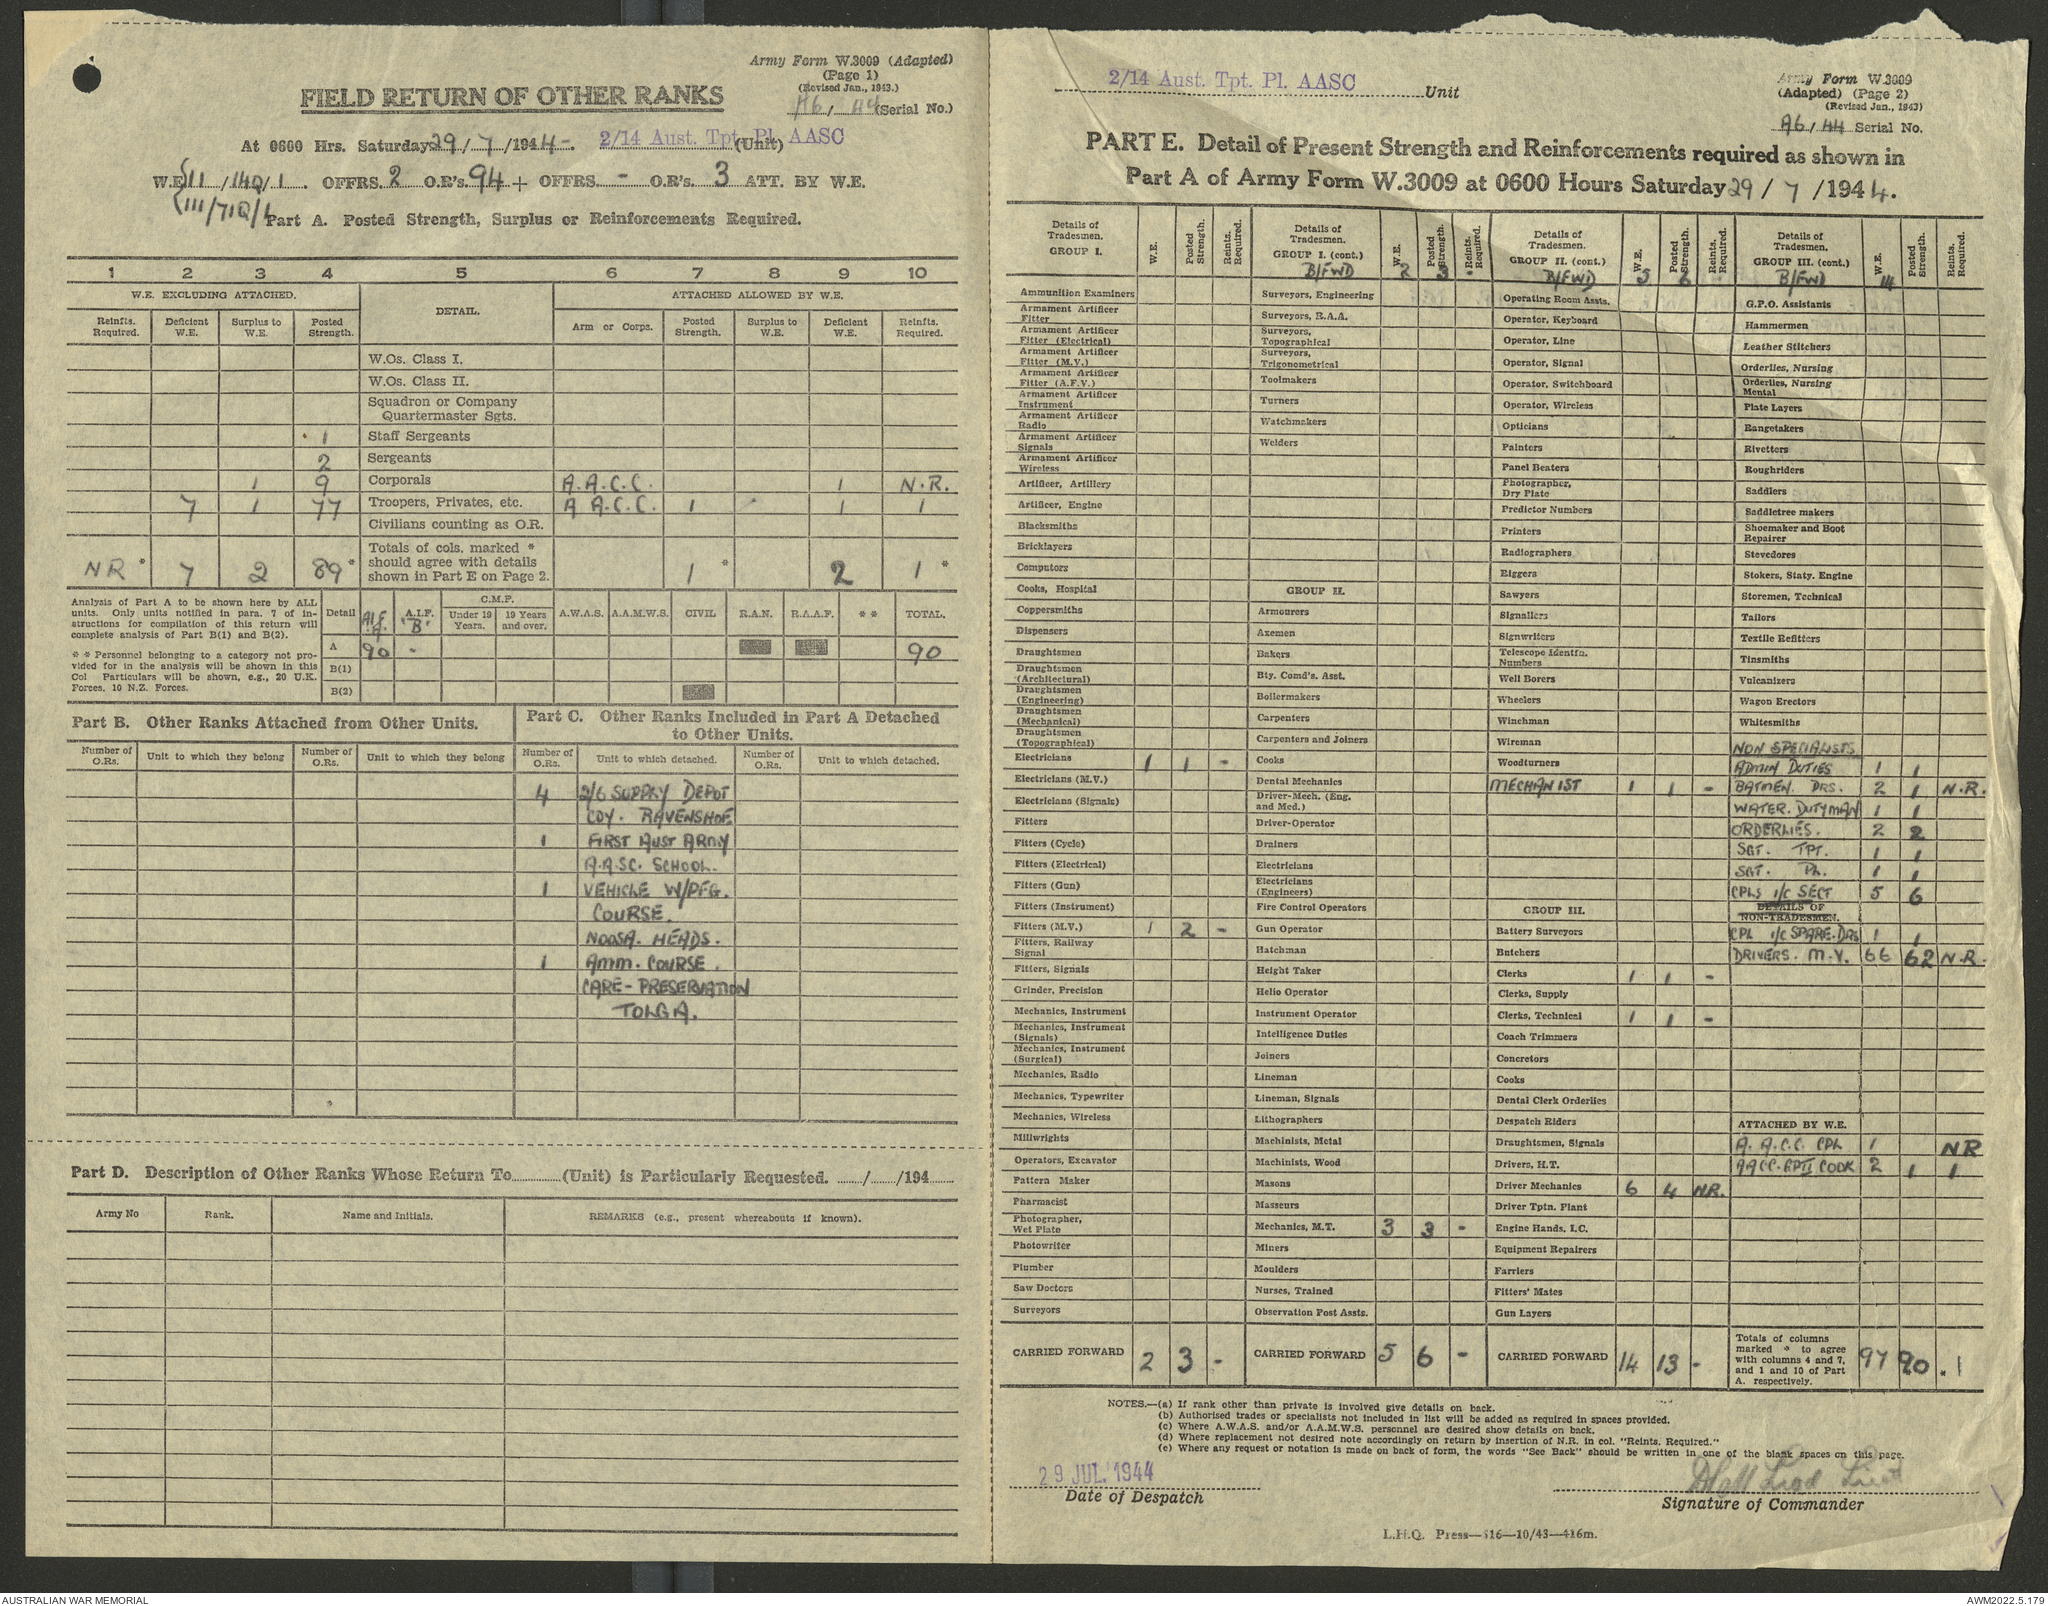 Army Form W.3009 (Adapted)
(Page 1)
(Revised Jan., 1943.)
A6/44 (Serial No.)
FIELD RETURN OF OTHER RANKS
At 0600 Hrs. Saturday 29/7/1944. 2/14 Aust. Tpt. Pl. AASC (Unit)
W.E. 11/140/1. OFFRS. 2 O.R's. 94 + OFFRS. - O.R's. 3 ATT. BY W.E.
Part A. Posted Strength, Surplus or Reinforcements Required.
1 2 3 4 5 6 7 8 9 10
W.E. EXCLUDING ATTACHED. DETAIL. ATTACHED ALLOWED BY W.E.
Reinfts. Required. Deficient W.E. Surplus to W.E. Posted Strength. Arm or Corps. Posted Strength. Surplus to W.E. Deficient W.E. Reinfts. Required.
W.Os. Class I.
W.Os. Class II.
Squadron or Company
Quartermaster Sgts.
1 Staff Sergeants
2 Sergeants
1 9 Corporals A.A.C.C. 1 N.R.
7 1 77 Troopers, Privates, etc. A A.C.C. 1 1 1
Civilians counting as O.R.
NR * 7 2 89 * Totals of cols. marked * should agree with details shown in Part E on Page 2. 1 * 2 1 *
Analysis of Part A to be shown here by ALL
units. Only units notified in para. 7 of in-
structions for compilation of this return will
complete analysis of Part B(1) and B(2).
* * Personnel belonging to a category not pro-
vided for in the analysis will be shown in this
Col Particulars will be shown, e.g., 20 U.K.
Forces, 10 N.Z. Forces.
Detail A.I.F. A. A.I.F. 'B'. C.M.F. Under 19 Years. 19 Years and over. A.W.A.S. A.A.M.W.S. CIVIL R.A.N. R.A.A.F. * * TOTAL.
A 90 - 90
B(1)
B(2)
Part B. Other Ranks Attached from Other Units.
Number of O.Rs. Unit to which they belong Number of O.Rs. Unit to which they belong
Part C. Other Ranks Included in Part A Detached
to Other Units.
Number of O.Rs. Unit to which detached. Number of O.Rs. Unit to which detached.
4 2/6 SUPPLY DEPOT
COY. RAVENSHOE
1 FIRST AUST ARMY
A.A.S.C. SCHOOL.
1 VEHICLE W/PFG.
COURSE.
NOOSA. HEADS.
1 AMM. COURSE.
CARE - PRESERVATION
TOLGA.
Part D. Description of Other Ranks Whose Return To (Unit) is Particularly Requested. / /194
Army No Rank. Name and Initials. REMARKS (e.g., present whereabouts if known).
2/14 Aust. Tpt. Pl. AASC Unit
Army Form W.3009
(Adapted) (Page 2)
(Revised Jan., 1943)
A6/44 Serial No.
PART E. Detail of Present Strength and Reinforcements required as shown in
Part A of Army Form W.3009 at 0600 Hours Saturday 29/7/1944.
Details of Tradesmen. GROUP I. W.E. Posted Strength. Reints. Required.
Ammunition Examiners
Armament Artificer Fitter
Armament Artificer Fitter (Electrical)
Armament Artificer Fitter (M.V.)
Armament Artificer Fitter (A.F.V.)
Armament Artificer Instrument
Armament Artificer Radio
Armament Artificer Signals
Armament Artificer Wireless
Artificer, Artillery
Artificer, Engine
Blacksmiths
Bricklayers
Computors
Cooks, Hospital
Coppersmiths
Dispensers
Draughtsmen
Draughtsmen (Architectural)
Draughtsmen (Engineering)
Draughtsmen (Mechanical)
Draughtsmen (Topographical)
Electricians 1 1 -
Electricians (M.V.)
Electricians (Signals)
Fitters
Fitters (Cycle)
Fitters (Electrical)
Fitters (Gun)
Fitters (Instrument)
Fitters (M.V.) 1 2 -
Fitters, Railway Signal
Fitters, Signals
Grinder, Precision
Mechanics, Instrument
Mechanics, Instrument (Signals)
Mechanics, Instrument (Surgical)
Mechanics, Radio
Mechanics, Typewriter
Mechanics, Wireless
Millwrights
Operators, Excavator
Pattern Maker
Pharmacist
Photographer, Wet Plate
Photowriter
Plumber
Saw Doctors
Surveyors
CARRIED FORWARD 2 3 -
Details of Tradesmen. GROUP I. (cont.) W.E. Posted Strength. * Reints. Required.
B/FWD 2 3
Surveyors, Engineering
Surveyors, R.A.A.
Surveyors, Topographical
Surveyors, Trigonometrical
Toolmakers
Turners
Watchmakers
Welders
GROUP II.
Armourers
Axemen
Bakers
Bty. Comd's. Asst.
Boilermakers
Carpenters
Carpenters and Joiners
Cooks
Dental Mechanics
Driver-Mech. (Eng. and Med.)
Driver-Operator
Drainers
Electricians
Electricians (Engineers)
Fire Control Operators
Gun Operator
Hatchman
Height Taker
Helio Operator
Instrument Operator
Intelligence Duties
Joiners
Lineman
Lineman, Signals
Lithographers
Machinists, Metal
Machinists, Wood
Masons
Masseurs
Mechanics, M.T. 3 3 -
Miners
Moulders
Nurses, Trained
Observation Post Assts.
CARRIED FORWARD 5 6 -
Details of Tradesmen. GROUP II. (cont.) W.E. Posted Strength. Reints. Required.
B/FWD 5 6 -
Operating Room Assts.
Operator, Keyboard
Operator, Line
Operator, Signal
Operator, Switchboard
Operator, Wireless
Opticians
Painters
Panel Beaters
Photographer, Dry Plate
Predictor Numbers
Printers
Radiographers
Riggers
Sawyers
Signallers
Signwriters
Telescope Identfn. Numbers
Well Borers
Wheelers
Winchman
Wireman
Woodturners
MECHANIST 1 1 -
GROUP III.
Battery Surveyors
Butchers
Clerks 1 1 -
Clerks, Supply
Clerks, Technical 1 1 -
Coach Trimmers
Concretors
Cooks
Dental Clerk Orderlies
Despatch Riders
Draughtsmen, Signals
Drivers, H.T.
Driver Mechanics 6 4 NR.
Driver Tptn. Plant
Engine Hands, I.C.
Equipment Repairers
Farriers
Fitters' Mates
Gun Layers
CARRIED FORWARD 14 13 -
Details of Tradesmen. GROUP III. (cont.) W.E. Posted Strength. Reints. Required.
B/FWD 14
G.P.O. Assistants
Hammermen
Leather Stitchers
Orderlies, Nursing
Orderlies, Nursing Mental
Plate Layers
Rangetakers
Rivetters
Roughriders
Saddlers
Saddletree makers
Shoemaker and Boot Repairer
Stevedores
Stokers, Staty. Engine
Storemen, Technical
Tailors
Textile Refitters
Tinsmiths
Vulcanizers
Wagon Erectors
Whitesmiths
NON SPECIALISTS
ADMIN DUTIES 1 1
BATMEN. DRS. 2 1 N.R.
WATER. DUTYMAN 1 1
ORDERLIES. 2 2
SGT. TPT. 1 1
SGT. PL. 1 1
CPLS i/c SECT 5 6
DETAILS OF NON-TRADESMEN.
CPL i/c SPARE. DRS 1 1
DRIVERS. M.V. 66 62 N.R.
ATTACHED BY W.E.
A. A.C.C. CPL 1 NR
AACC. GPII COOK 2 1 1
Totals of columns marked * to agree with columns 4 and 7, and 1 and 10 of Part A. respectively. 97 90 * 1
NOTES.—(a) If rank other than private is involved give details on back.
(b) Authorised trades or specialists not included in list will be added as required in spaces provided.
(c) Where A.W.A.S. and/or A.A.M.W.S. personnel are desired show details on back.
(d) Where replacement not desired note accordingly on return by insertion of N.R. in col. "Reints. Required."
(e) Where any request or notation is made on back of form, the words "See Back" should be written in one of the blank spaces on this page.
29 JUL. 1944
Date of Despatch
Lieut
Signature of Commander
L.H.Q. Press—516—10/43—416m.
AUSTRALIAN WAR MEMORIAL
AWM2022.5.179